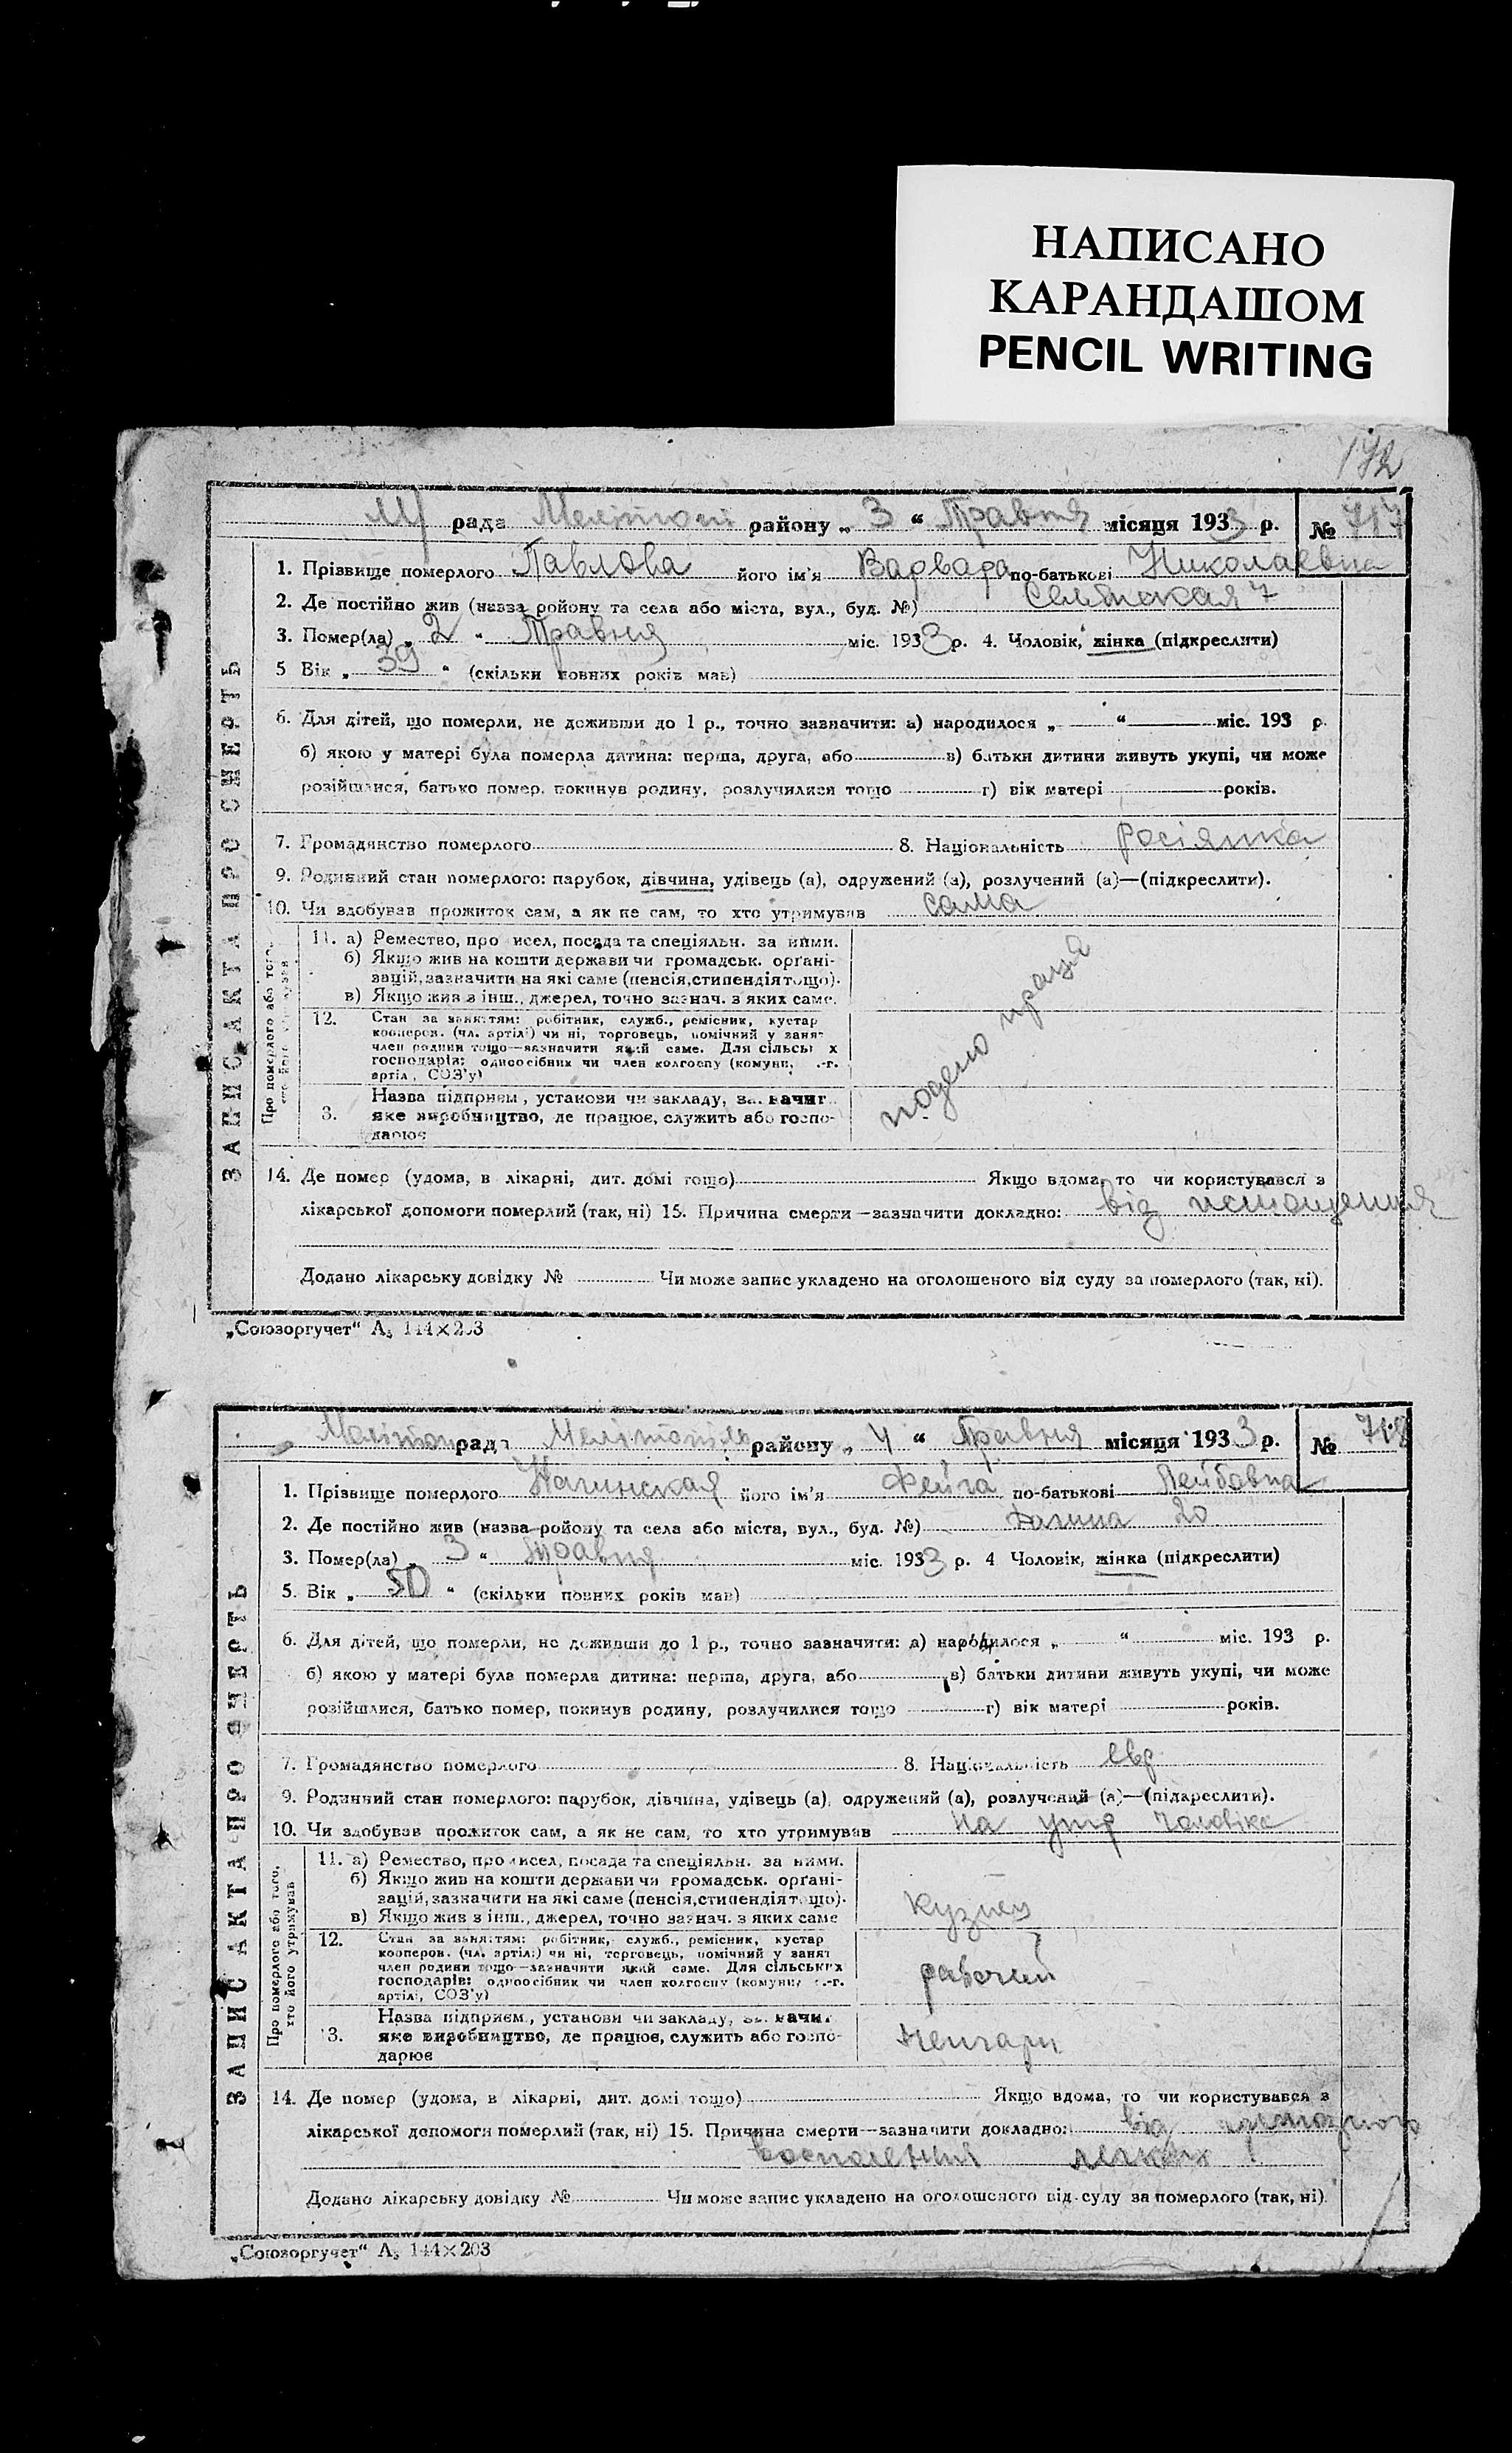 НАПИСАНО
КАРАНДАШОМ
PENCIL WRITING
172
рада Меліпоп району „ 3 “ Травня місяця 1933 р. № 717
1. Прізвище померлого Павлова його ім'я Варвара по-батькові Николаевна
2. Де постійно жив (назва ройону та села або міста, вул., буд. №) 7
3. Помер(ла) „ 2 “ Травня міс. 1933 р. 4. Чоловік, жінка (підкреслити)
5 Вік „ 39 “ (скільки повних років мав)
6. Для дітей, що померли, не доживши до 1 р., точно зазначити: а) народилося „ “ міс. 193 р.
б) якою у матері була померла дитина: перша, друга, або в) батьки дитини живуть укупі, чи може
розійшлися, батько помер, покинув родину, розлучилися тощо г) вік матері років.
7. Громадянство померлого 8. Національність росіянка
9. Родинний стан померлого: парубок, дівчина, удівець (а), одружений (а), розлучений (а)—(підкреслити).
10. Чи здобував прожиток сам, а як не сам, то хто утримував сама
ЗАПИС АКТА ПРО СМЕРТЬ
Про померлого або того,
11. а) Ремество, про исел, посада та спеціяльн. за ними.
б) Якщо жив на кошти держави чи громадськ. орґані-
зацій, зазначити на які саме (пенсія, стипендія тощо).
в) Якщо жив з інш., джерел, точно зазнач. з яких саме.
12. Стан за заняттям: робітник, служб., ремісник, кустар
кооперов. (чл. артілі) чи ні, торговець, помічний у занят
член родини тощо—зазначити який саме. Для сільськ х
господарів: одноосібник чи член колгоспу (комуни, .-г.
артіл, СОЗ'у)
3. Назва підприєм, установи чи закладу, за. начиг
яке виробництво, де працює, служить або госпо-
дарює
подено праця
14. Де помер (удома, в лікарні, дит. домі тощо) Якщо вдома, то чи користувався з
лікарської допомоги померлий (так, ні) 15. Причина смерти—зазначити докладно: від истощения
Додано лікарську довідку № Чи може запис укладено на оголошеного від суду за померлого (так, ні).
„Союзоргучет“ А₅ 144×203
рада Мелітопіль району „ 4 “ Травня місяця 1933 р. № 718
1. Прізвище померлого його ім'я Фейга по-батькові Лейбовна
2. Де постійно жив (назва ройону та села або міста, вул., буд. №) 20
3. Помер(ла) „ 3 “ Травня міс. 1933 р. 4 Чоловік, жінка (підкреслити)
5. Вік „ 50 “ (скільки повних років мав)
6. Для дітей, що померли, не доживши до 1 р., точно зазначити: а) народилося „ “ міс. 193 р.
б) якою у матері була померла дитина: перша, друга, або в) батьки дитини живуть укупі, чи може
розійшлися, батько помер, покинув родину, розлучилися тощо г) вік матері років.
7. Громадянство померлого 8. Національність евр
9. Родинний стан померлого: парубок, дівчина, удівець (а), одружений (а), розлучений (а)—(підкреслити).
10. Чи здобував прожиток сам, а як не сам, то хто утримував на утр чоловіка
ЗАПИС АКТА ПРО СМЕРТЬ
Про померлого або того,
хто його утримував
11. а) Ремество, про исел, посада та спеціяльн. за ними.
б) Якщо жив на кошти держави чи громадськ. орґані-
зацій, зазначити на які саме (пенсія, стипендія тощо).
в) Якщо жив з інш., джерел, точно зазнач. з яких саме
кузнец
12. Стан за заняттям: робітник, служб., ремісник, кустар
кооперов. (чл. артілі) чи ні, торговець, помічний у занят
член родини тощо—зазначити який саме. Для сільських
господарів: одноосібник чи член колгоспу (комуни .-г.
артілі, СОЗ'у)
рабочий
3. Назва підприєм., установи чи закладу, за. начиг
яке виробництво, де працює, служить або госпо-
дарює
14. Де помер (удома, в лікарні, дит. домі тощо) Якщо вдома, то чи користувався з
лікарської допомоги померлий (так, ні) 15. Причина смерти—зазначити докладно: від
воспаления легких
Додано лікарську довідку № Чи може запис укладено на оголошеного від суду за померлого (так, ні)
„Союзоргучет“ А₅ 144×203